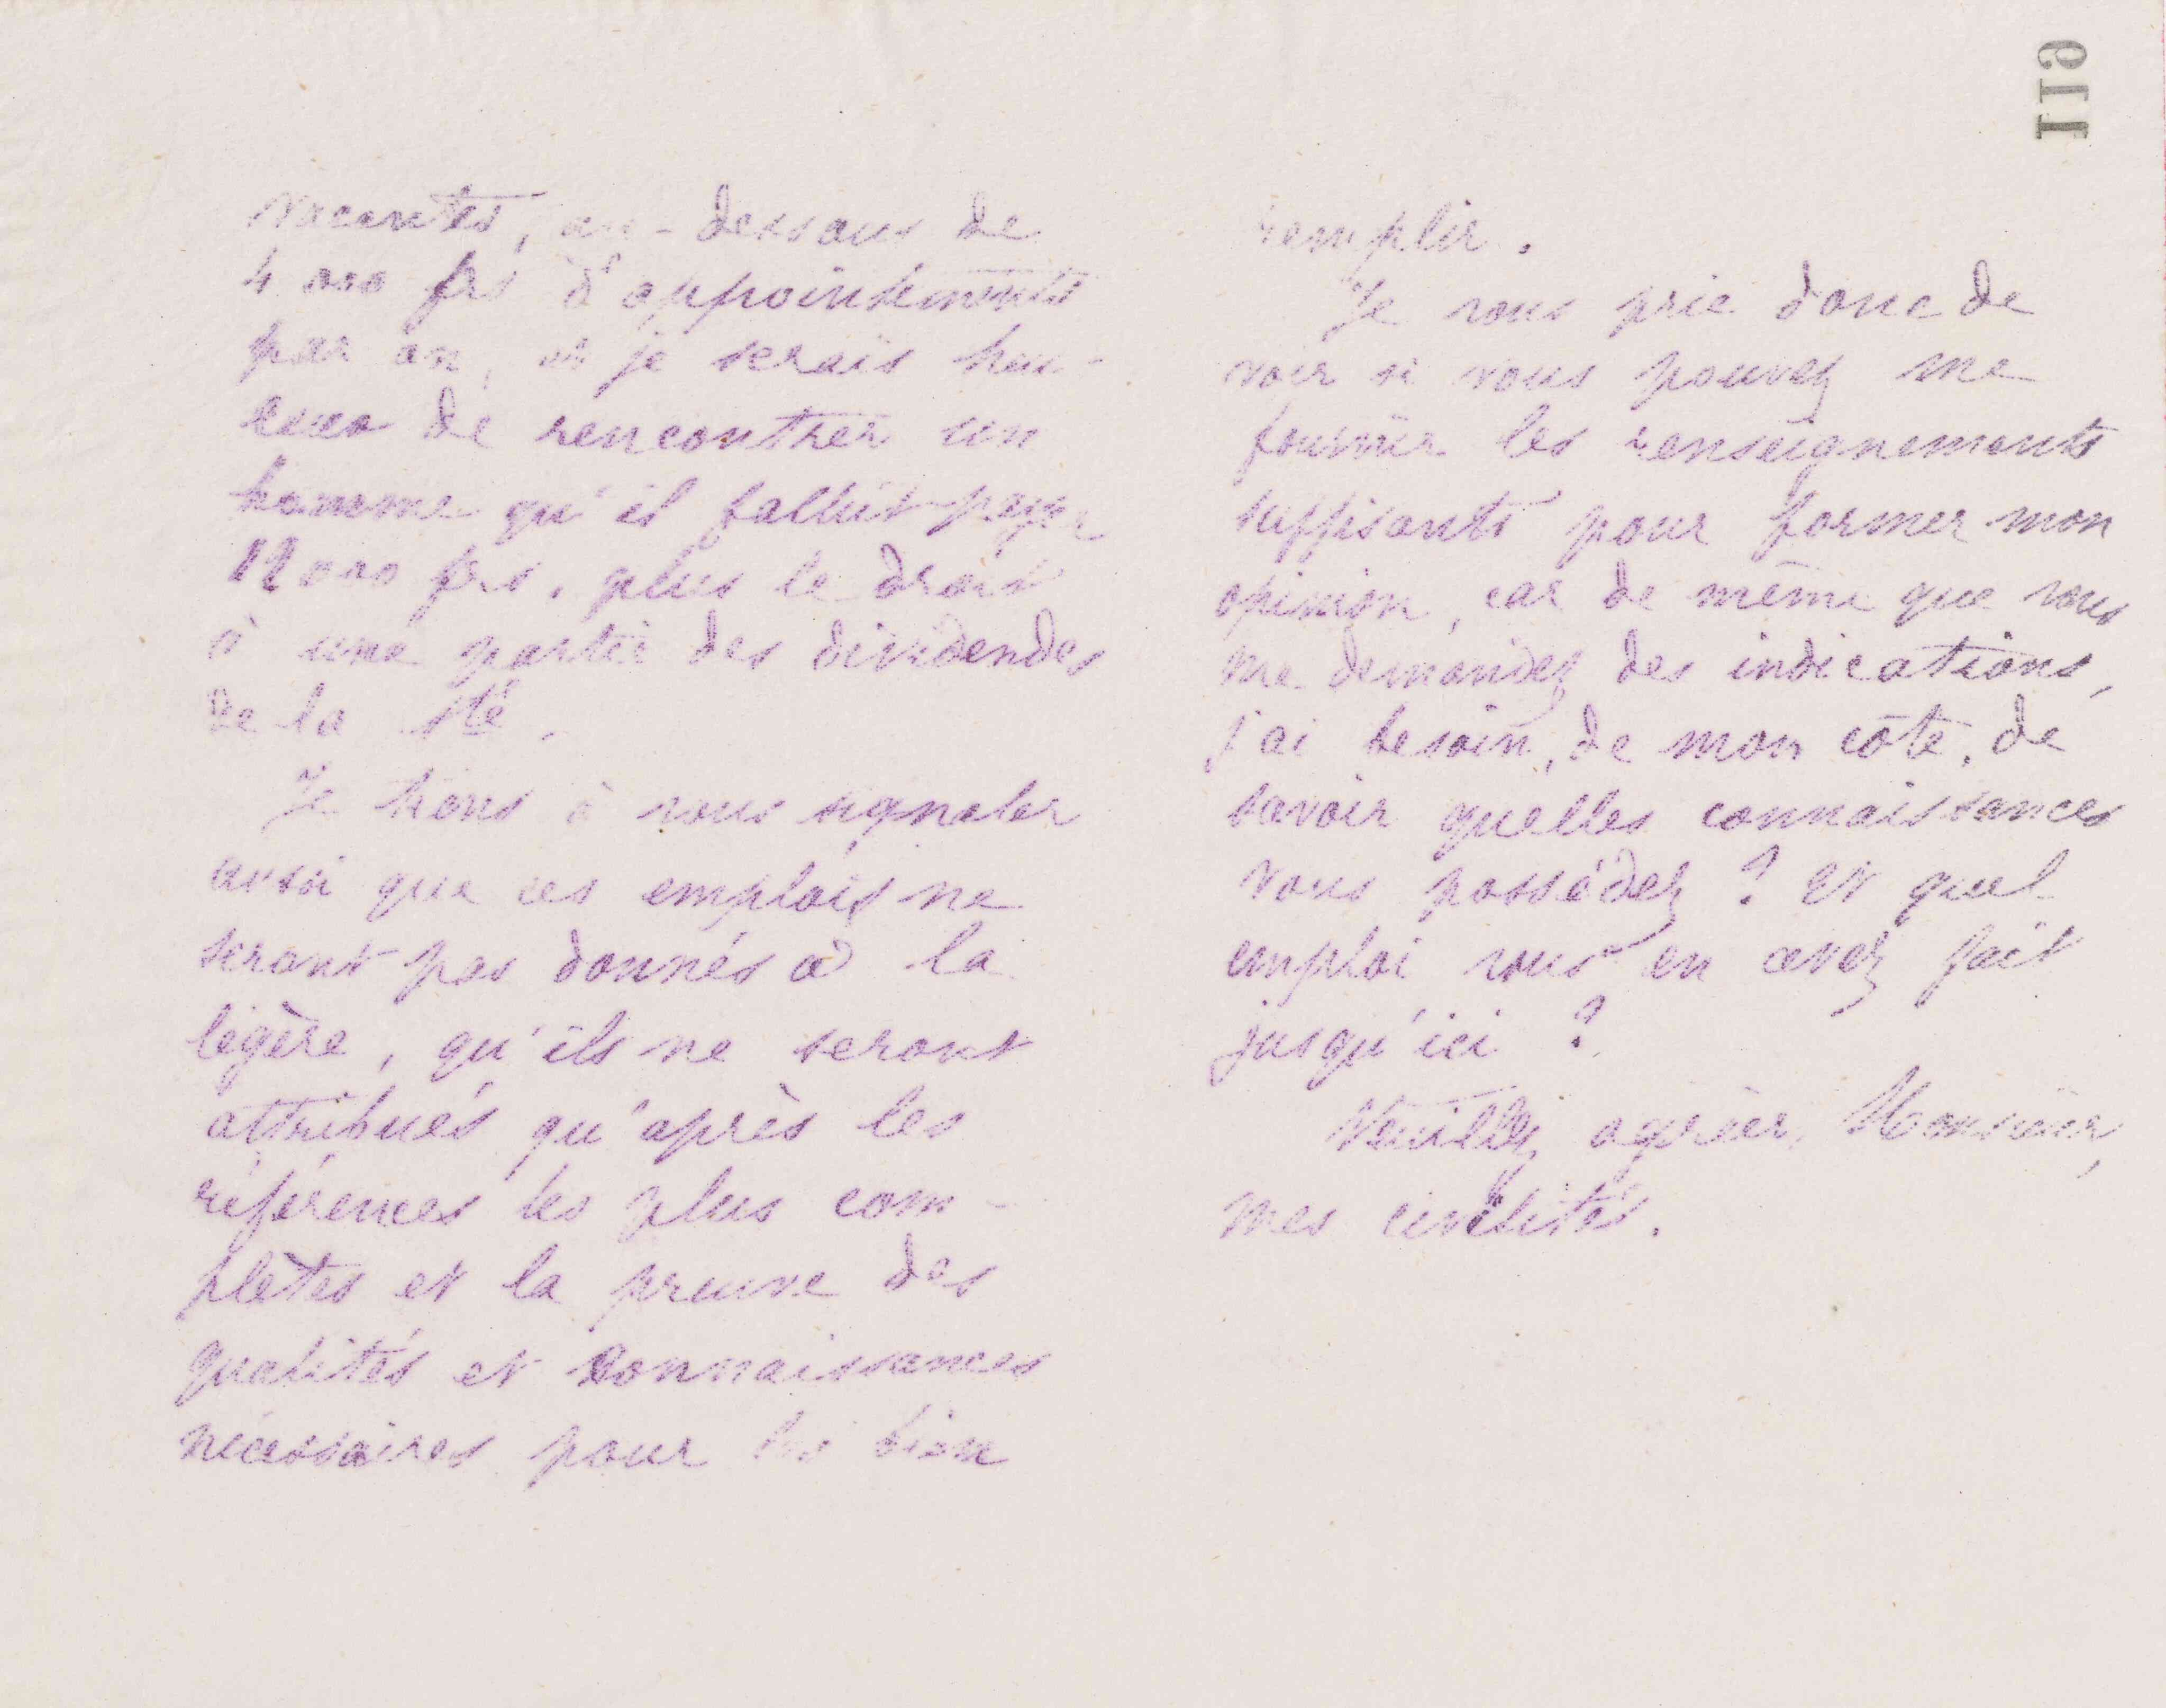 vacantes, au-dessous de
4 000 frs d'appointements
par an, et je serais heu-
reux de rencontrer un
homme qu'il fallût payer
12 000 frs, plus le droit
à une partie des dividendes
de la Sté.
Je tiens à vous signaler
aussi que ces emplois ne
seront pas donnés à la
légère, qu'ils ne seront
attribués qu'après les
références les plus com-
plètes et la preuve des
qualités et connaissances
nécessaires pour les bien
119
remplir.
Je vous prie donc de
voir si vous pouvez me
fournir les renseignements
suffisants pour former mon
opinion, car de même que vous
me demandez des indications,
j'ai besoin, de mon côté, de
savoir quelles connaissances
vous possédez ? et quel
emploi vous en avez fait
jusqu'ici ?
Veuillez agréer, Monsieur,
mes civilités.